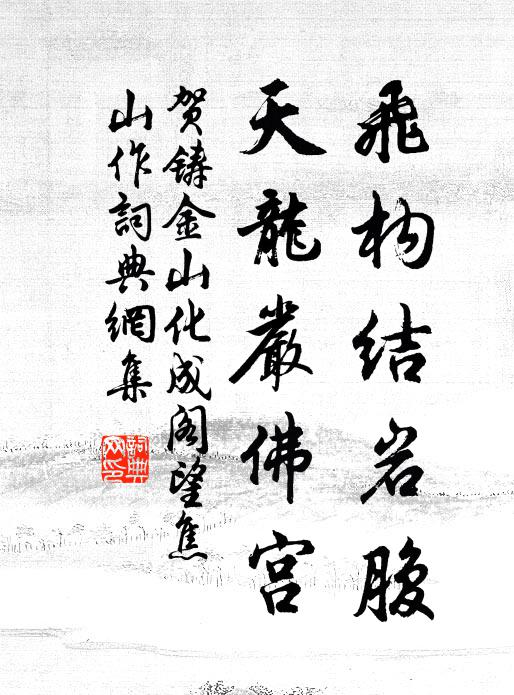 飛构结岩腹
天龍嚴佛宫
贺鑄金山化成阁望焦
山作詞典網集
詞典
网印